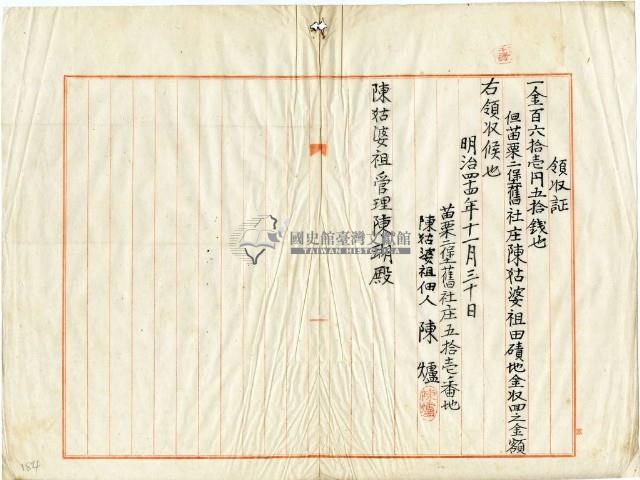 領收証
一金百六拾壱円五拾銭也
但苗栗二保舊社庄陳姑婆祖田磧地金収四之金額
右領収候也
明治四十四年十一月三十日
苗栗二堡舊社庄五拾壱番地
陳姑婆祖佃人 陳爐
陳爐
陳姑婆祖管理陳瑚殿
國史館臺灣文獻館
TAIWAN HISTORICA
184